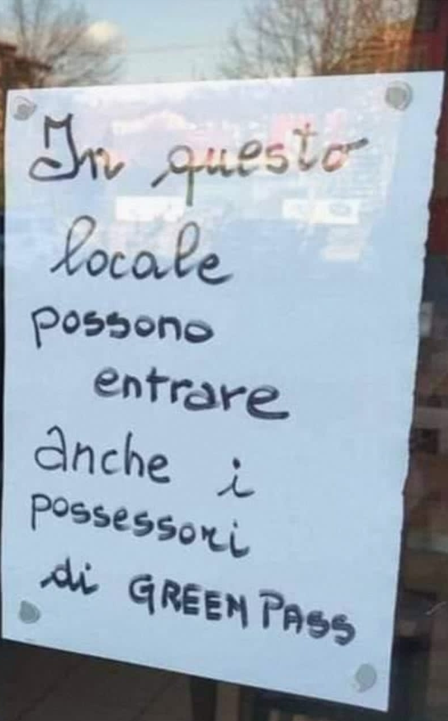 In questo
locale
possono
entrare
anche i
possessori
di GREEN PASS